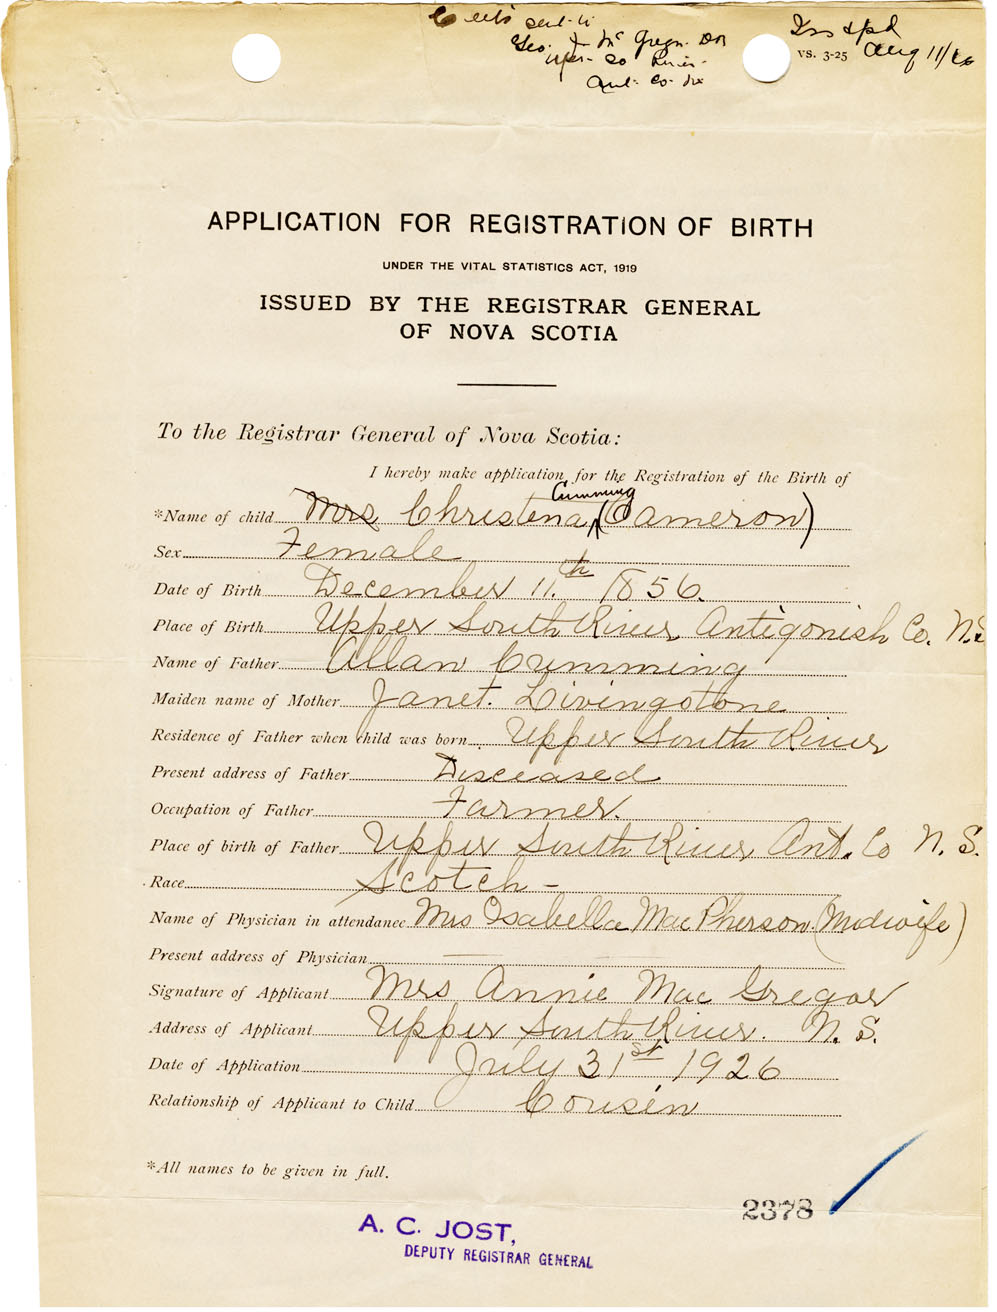 Certs sent to
Geo. J. McGregor DR
Upr. So River
Ant. Co. NS
VS. 3-25 Aug 11/26
APPLICATION FOR REGISTRATION OF BIRTH
UNDER THE VITAL STATISTICS ACT, 1919
ISSUED BY THE REGISTRAR GENERAL
OF NOVA SCOTIA
To the Registrar General of Nova Scotia:
I hereby make application for the Registration of the Birth of
Cumming
*Name of child Mrs Christena (Cameron)
Sex Female
Date of Birth December 11.th 1856.
Place of Birth Upper South River Antigonish Co. N.S
Name of Father Allan Cumming
Maiden name of Mother Janet. Livingstone
Residence of Father when child was born Upper South River
Present address of Father Disceased
Occupation of Father Farmer.
Place of birth of Father Upper South River Ant. Co N. S.
Race Scotch -
Name of Physician in attendance Mrs Isabella MacPherson (Midwife)
Present address of Physician
Signature of Applicant Mrs Annie Mac Gregor
Address of Applicant Upper South River. N. S.
Date of Application July 31st 1926
Relationship of Applicant to Child Cousin
*All names to be given in full.
2378
A. C. JOST,
DEPUTY REGISTRAR GENERAL